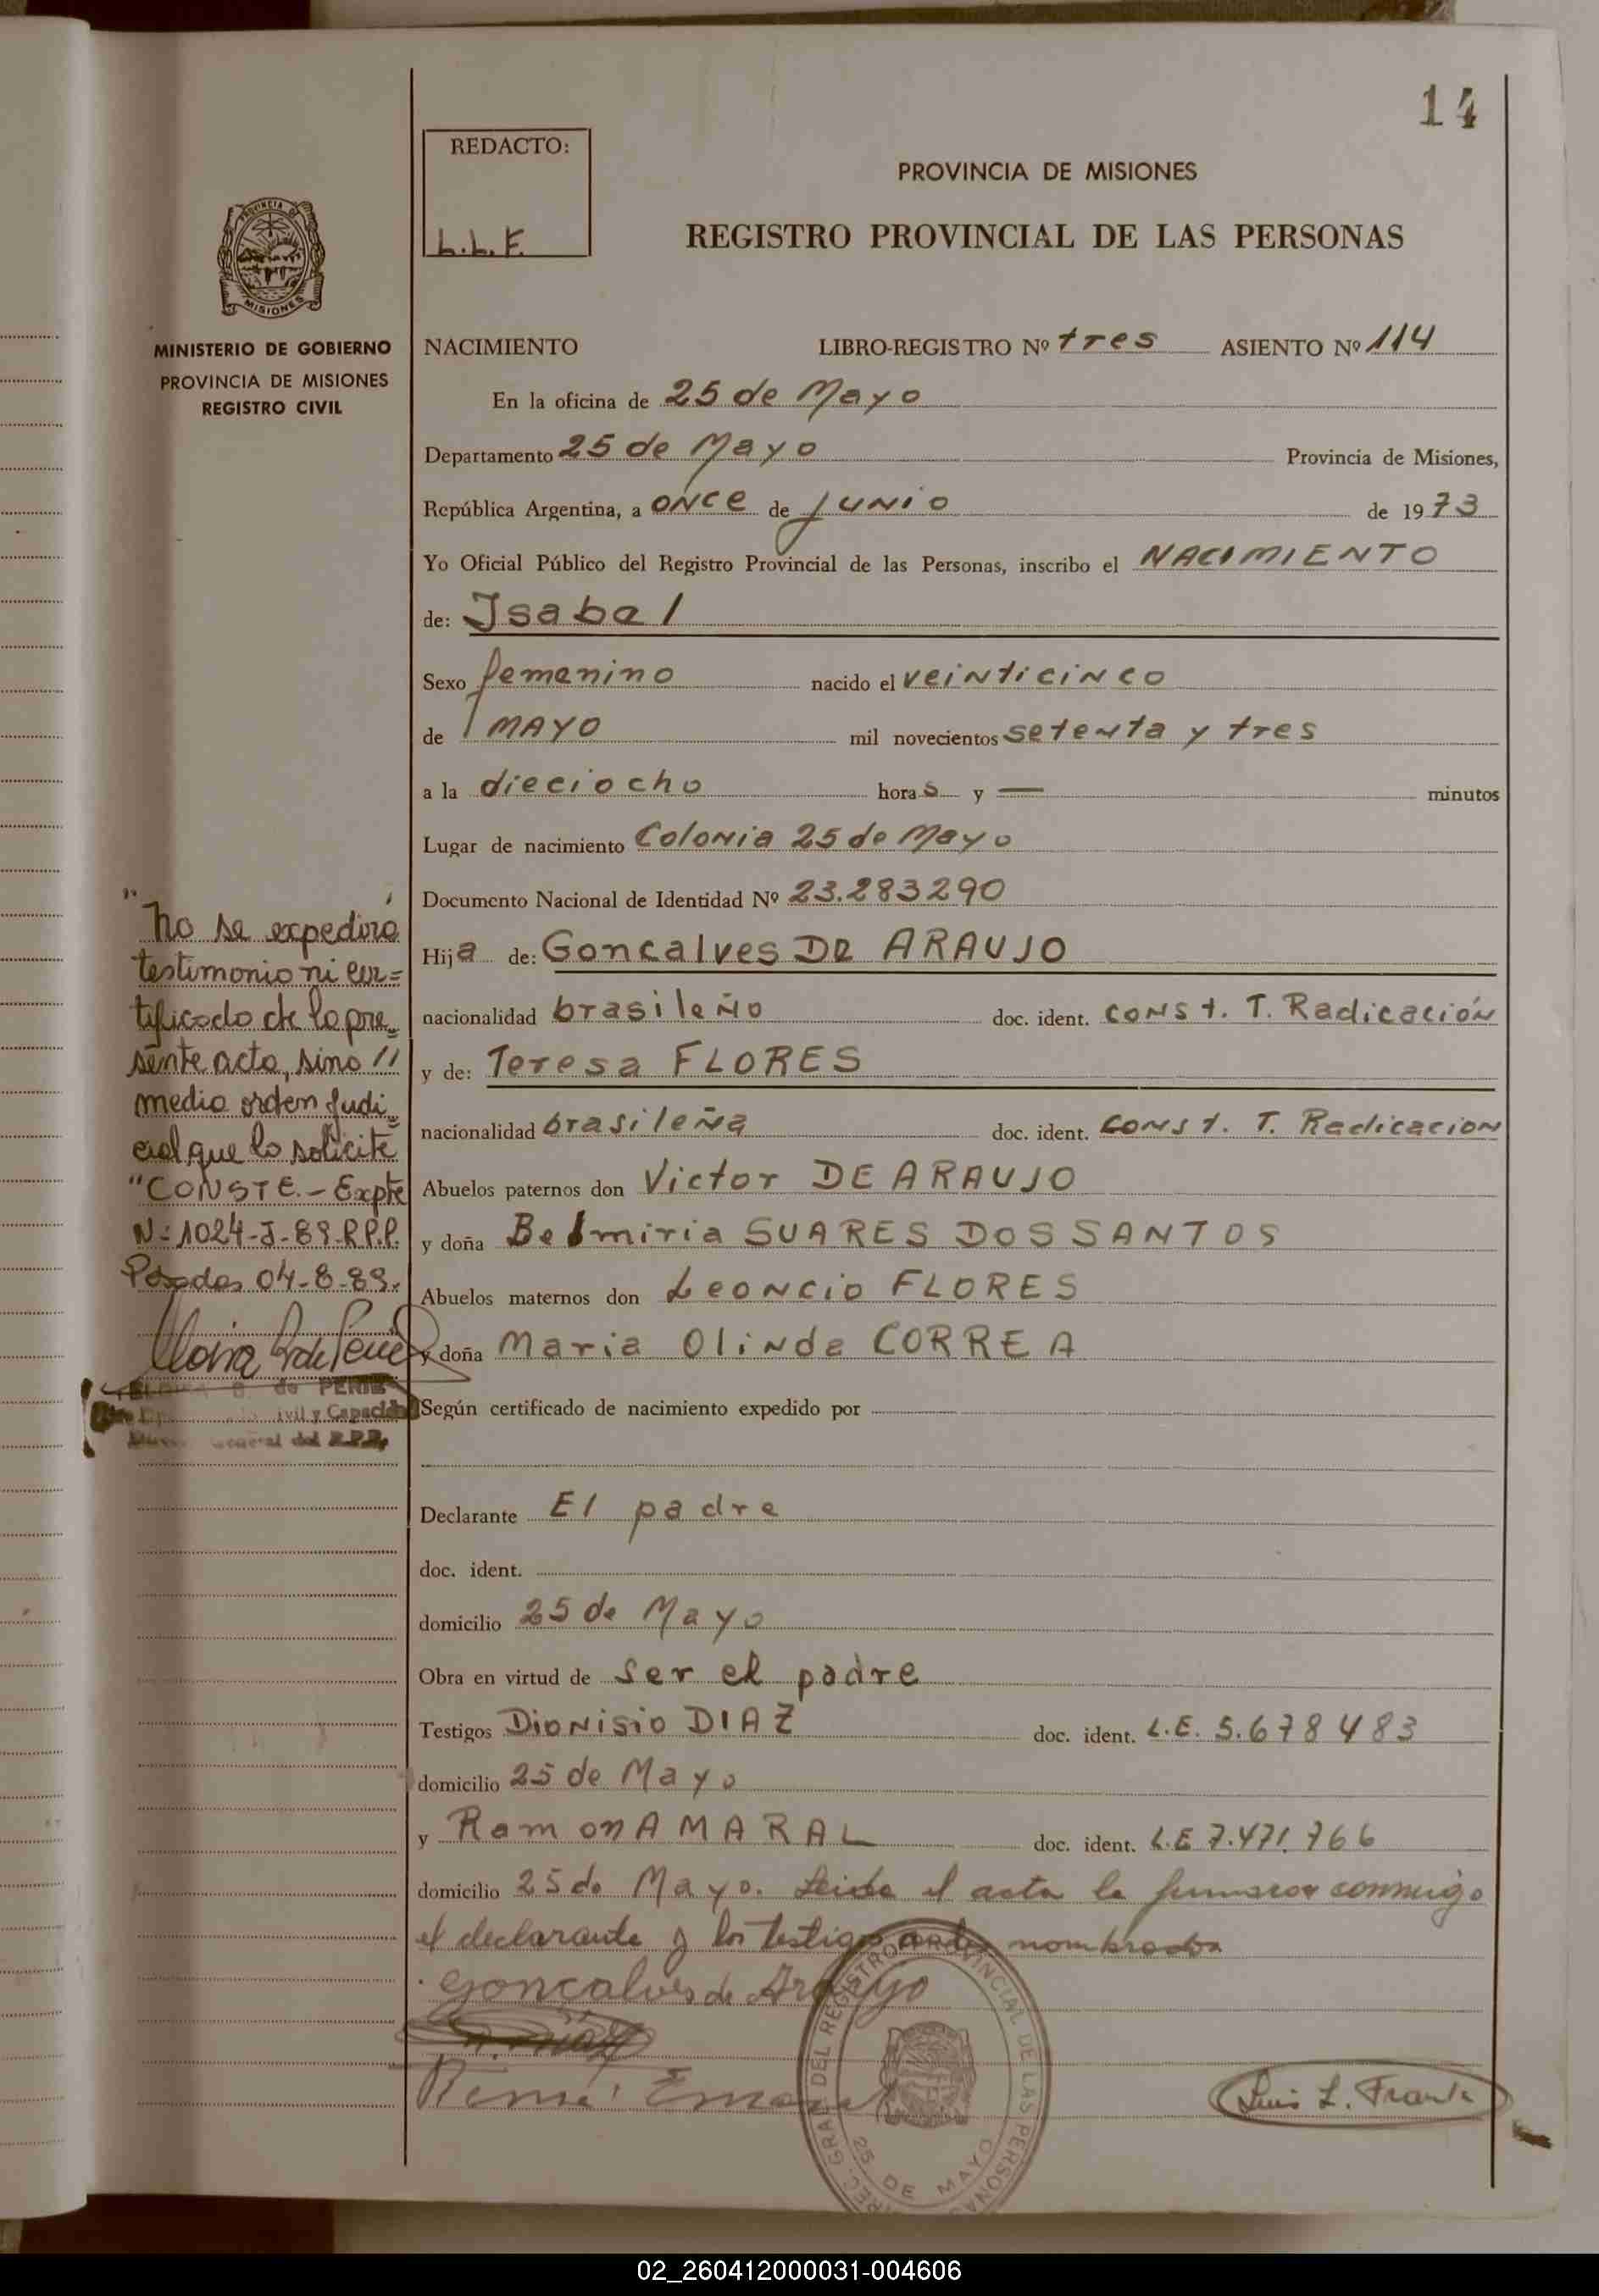 14
REDACTO:
L.L.F.
PROVINCIA DE MISIONES
REGISTRO PROVINCIAL DE LAS PERSONAS
PROVINCIA DE
MISIONES
MINISTERIO DE GOBIERNO
PROVINCIA DE MISIONES
REGISTRO CIVIL
NACIMIENTO LIBRO-REGISTRO Nº tres ASIENTO Nº 114
En la oficina de 25 de Mayo
Departamento 25 de Mayo Provincia de Misiones,
República Argentina, a once de Junio de 1973
Yo Oficial Público del Registro Provincial de las Personas, inscribo el NACIMIENTO
de: Isabel
Sexo femenino nacido el veinticinco
de MAYO mil novecientos setenta y tres
a la dieciocho horas y — minutos
Lugar de nacimiento Colonia 25 de Mayo
Documento Nacional de Identidad Nº 23.283290
Hija de: Goncalves DE ARAUJO
nacionalidad brasileño doc. ident. const. T. Radicación
y de: Teresa FLORES
nacionalidad brasileña doc. ident. const. T. Radicacion
Abuelos paternos don Victor DE ARAUJO
y doña Belmiria SUARES DOS SANTOS
Abuelos maternos don Leoncio FLORES
y doña Maria Olinda CORREA
Según certificado de nacimiento expedido por
Declarante El padre
doc. ident.
domicilio 25 de Mayo
Obra en virtud de ser el padre
Testigos Dionisio DIAZ doc. ident. L.E. 5.678483
domicilio 25 de Mayo
y Ramon AMARAL doc. ident. L.E 7.471.766
domicilio 25 de Mayo. Leida el acta la firmaron conmigo
el declarante y los testigos antes nombrados
Goncalves de Araujo
Luis L. Frank
REGISTRO PROVINCIAL DE LAS PERSONAS
25 DE MAYO
"No se expedirá
testimonio ni cer=
tificado de la pre=
sente acta, sino //
medio orden Judi=
cial que lo solicite
"CONSTE.- Expte
N: 1024-J-89-R.P.P.
Posadas 04-8-89.
de PERIE
ivil y Capacita
General del R.P.P.
02_260412000031-004606